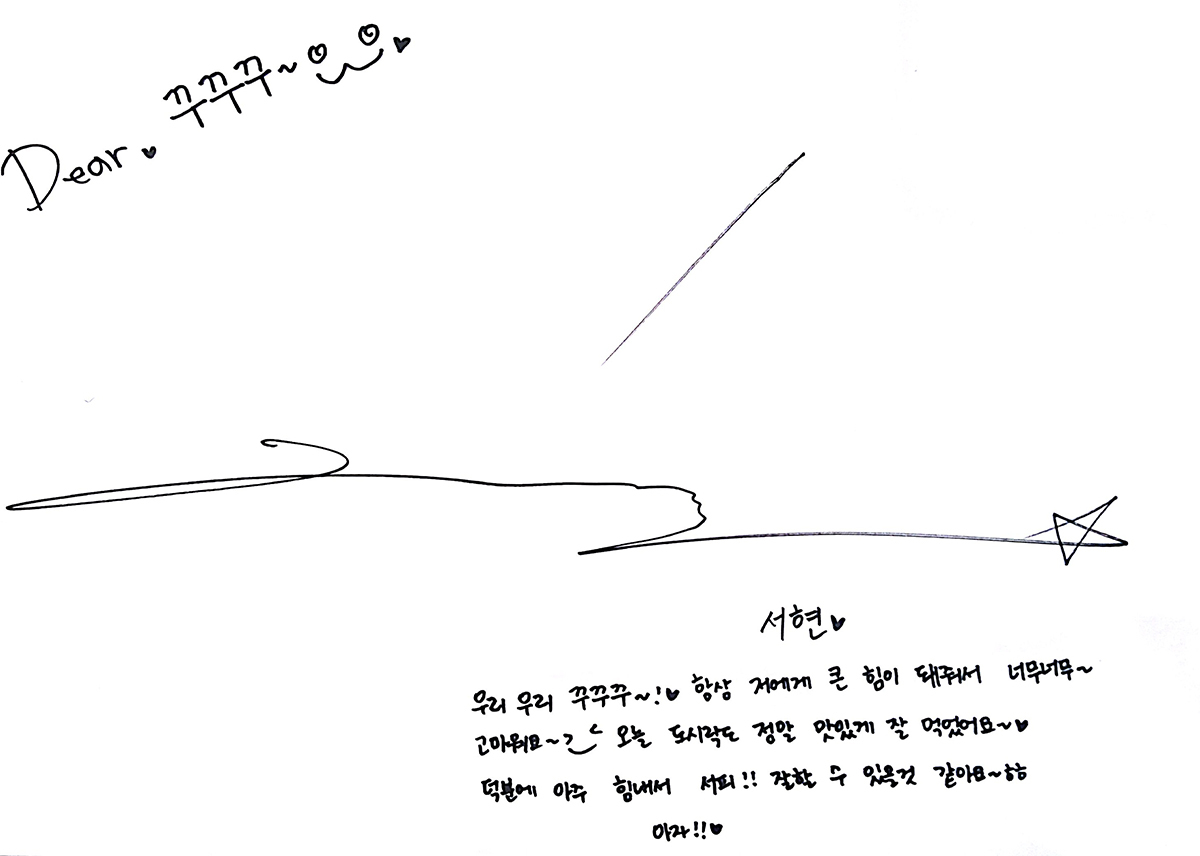 Dear. ♥ 뀨뀨뀨~ ♥
서현♥
우리 우리 뀨뀨뀨~!♥ 항상 저에게 큰 힘이 돼줘서 너무너무~
고마워요~ 오늘 도시락도 정말 맛있게 잘 먹었어요~♥
덕분에 아주 힘내서 서피!! 잘할 수 있을것 같아요~ㅎㅎ
아자!!♥